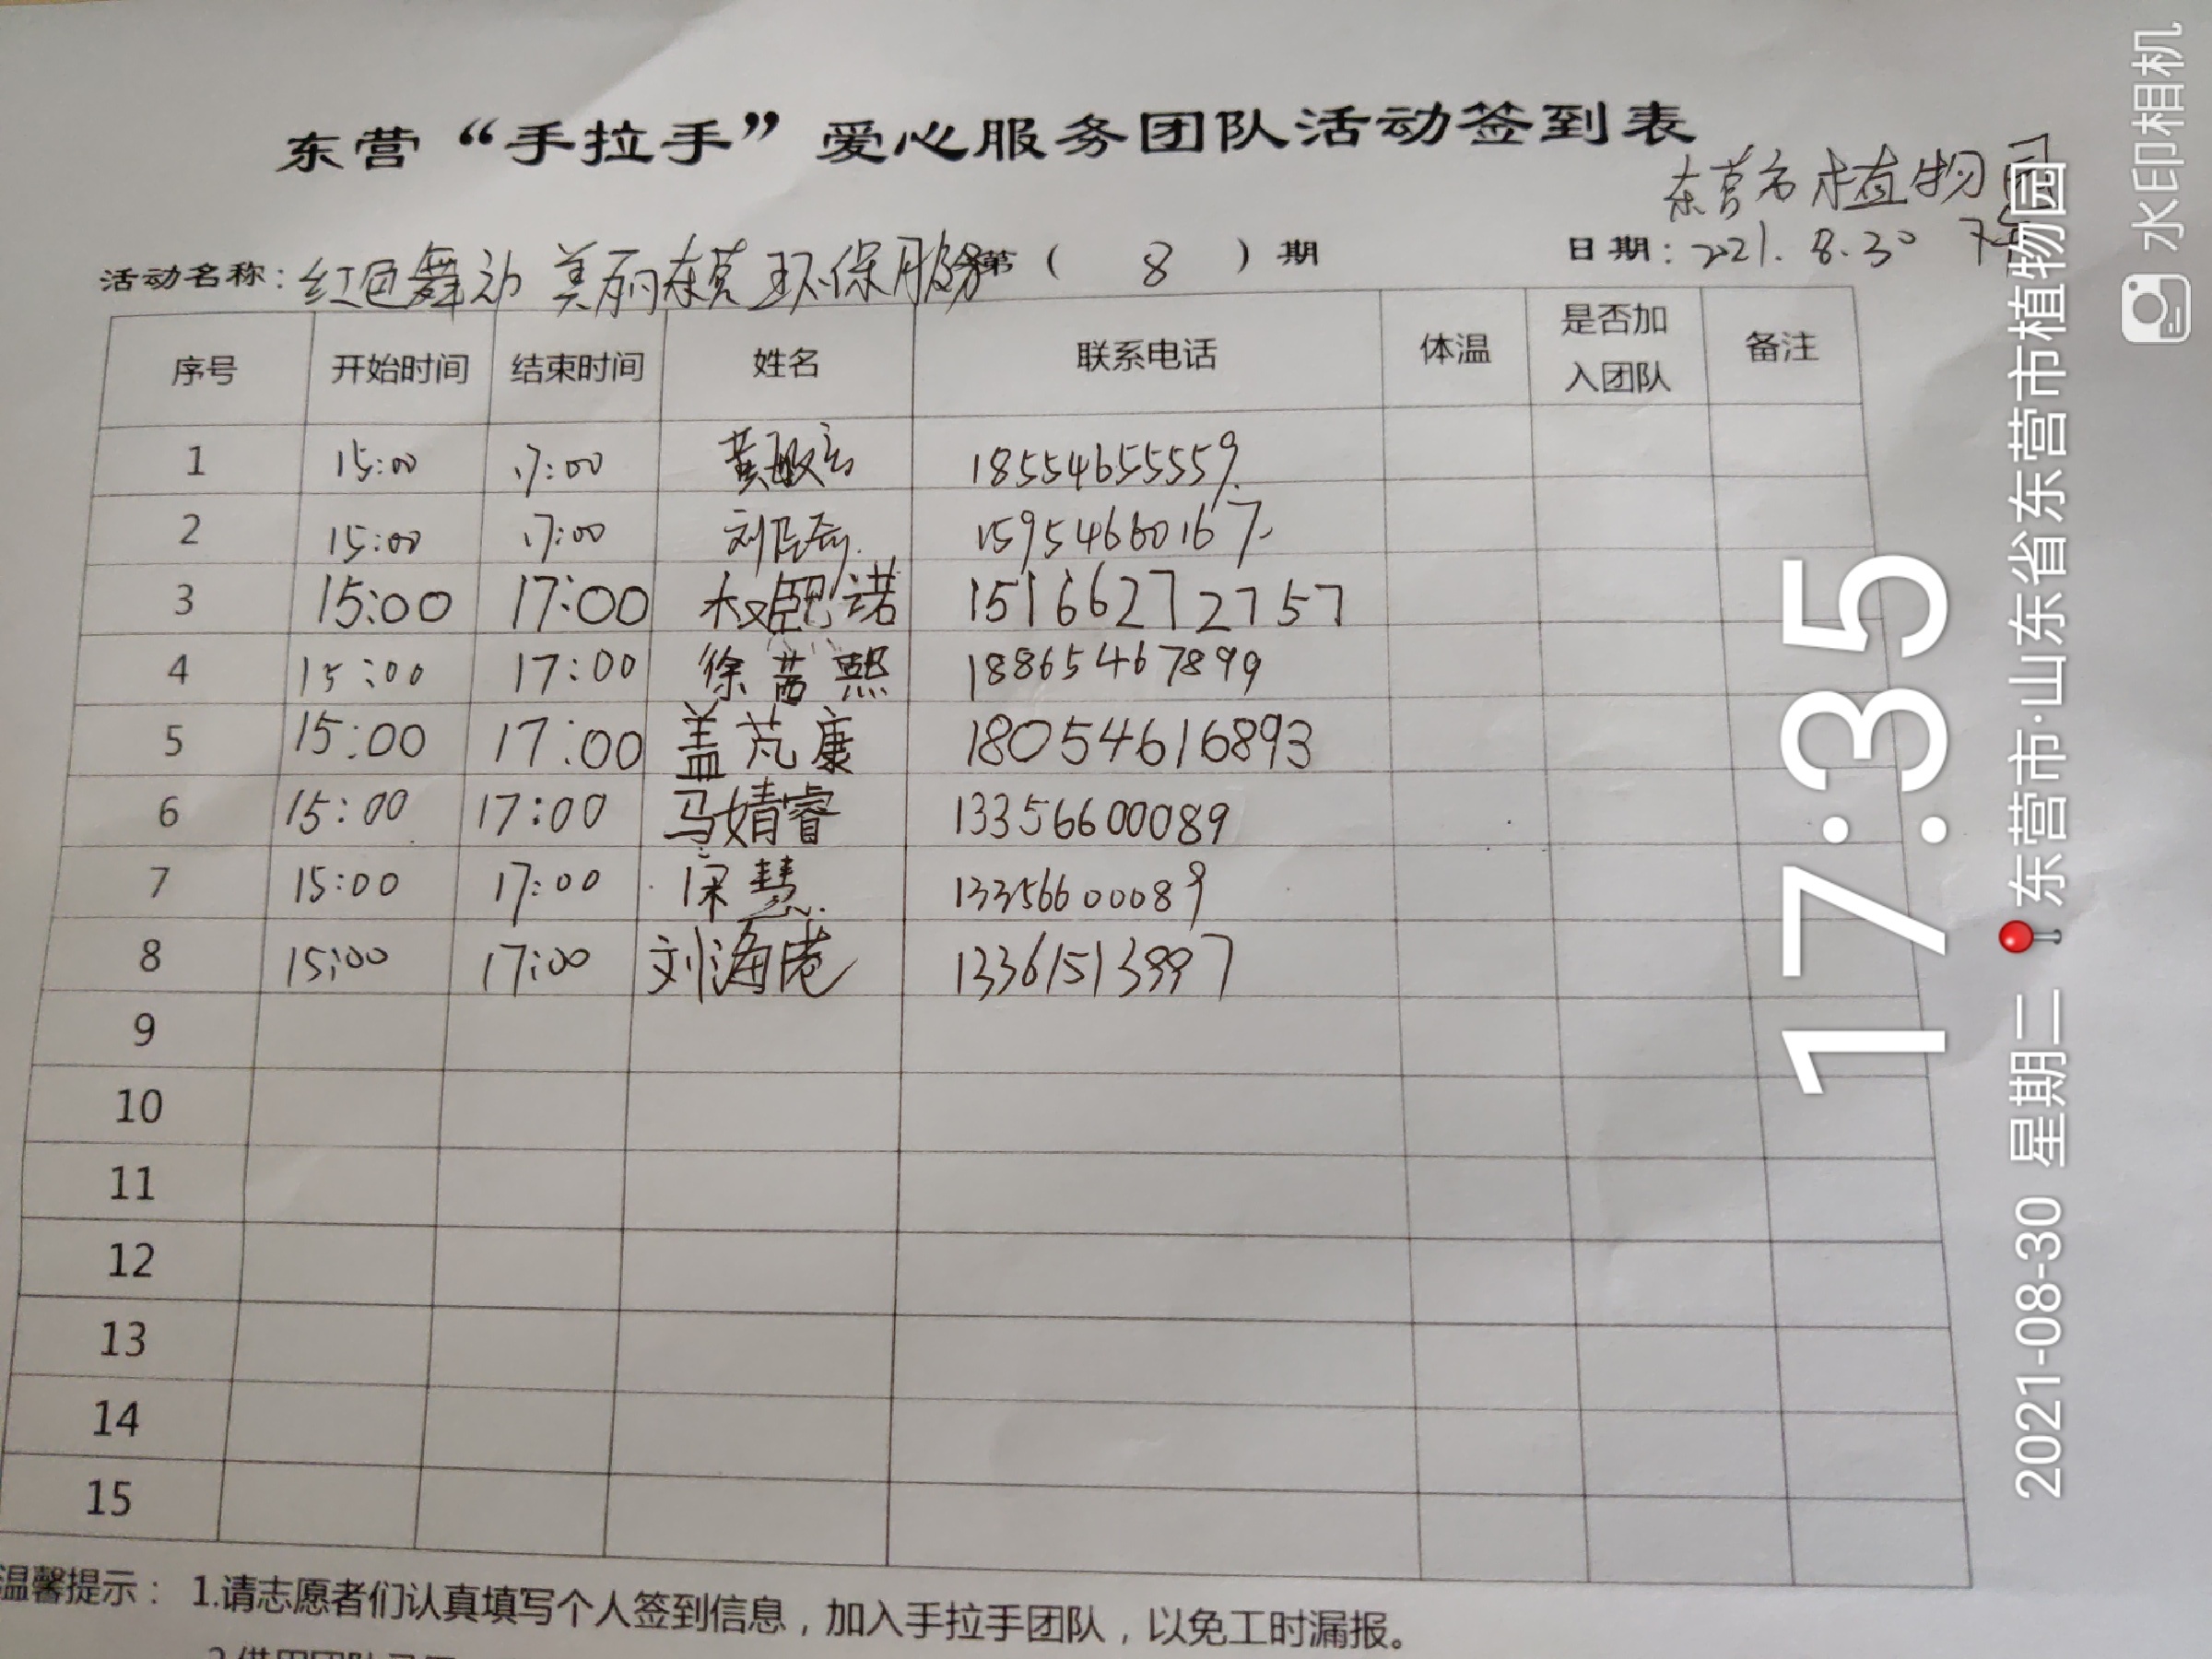 东营“手拉手”爱心服务团队活动签到表
东营市植物园
活动名称：红色舞动 美丽东营 环保服务 第（ 8 ）期 日期：2021.8.30
序号 开始时间 结束时间 姓名 联系电话 体温 是否加入团队 备注
1 15:00 17:00 黄 18554655559
2 15:00 17:00 刘 15954660167
3 15:00 17:00 权 诺 15166272757
4 15:00 17:00 徐茜熙 18865467899
5 15:00 17:00 盖芃康 18054616893
6 15:00 17:00 马婧睿 13356600089
7 15:00 17:00 慧 13356600089
8 15:00 17:00 刘海 13361513997
9
10
11
12
13
14
15
温馨提示：1.请志愿者们认真填写个人签到信息，加入手拉手团队，以免工时漏报。
17:35
2021-08-30 星期二 东营市·山东省东营市东营市植物园
水印相机